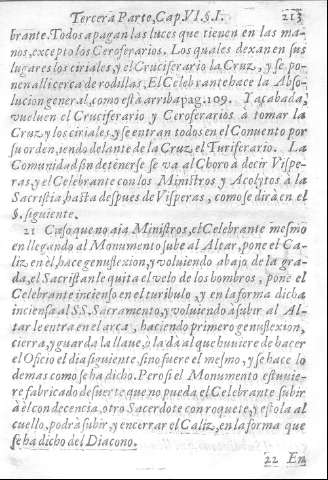 Tercera Parte, Cap. VI. §. I. 213
brante. Todos apagan las luces que tienen en las ma-
nos, excepto los Ceroferarios. Los quales dexan en sus
lugares los ciriales, y el Cruciferario la Cruz, y se po-
nen alli cerca de rodillas, El Celebrante hace la Abso-
lucion general, como està arriba pag. 109. Y acabada,
vuelven el Cruciferario y Ceroferarios à tomar la
Cruz y los ciriales, y se entran todos en el Convento por
su orden, iendo delante de la Cruz el Turiferario. La
Comunidad sin detenerse se va al Choro à decir Vispe-
ras, y el Celebrante con los Ministros y Acolytos à la
Sacristia, hasta despues de Visperas, como se dirà en el
§. siguiente.
21 Caso que no aia Ministros, el Celebrante mesmo
en llegando al Monumento sube al Altar, pone el Ca-
liz en el, hace genuflexion, y volviendo abajo de la gra-
da, el Sacristan le quita el velo de los hombros, pone el
Celebrante incienso en el turibulo, y en la forma dicha
inciensa al SS. Sacramento, y volviendo à subir al Al-
tar le entra en el arca, haciendo primero genuflexion,
cierra, y guarda la llave, ò la dà al que huviere de hacer
el Oficio el dia siguiente, sino fuere el mesmo, y se hace lo
demas como se ha dicho. Pero si el Monumento estuvie-
re fabricado de suerte que no pueda el Celebrante subir
à èl con decencia, otro Sacerdote con roquete, y estola al
cuello, podrà subir, y encerrar el Caliz, en la forma que
se ha dicho del Diacono.
22 En